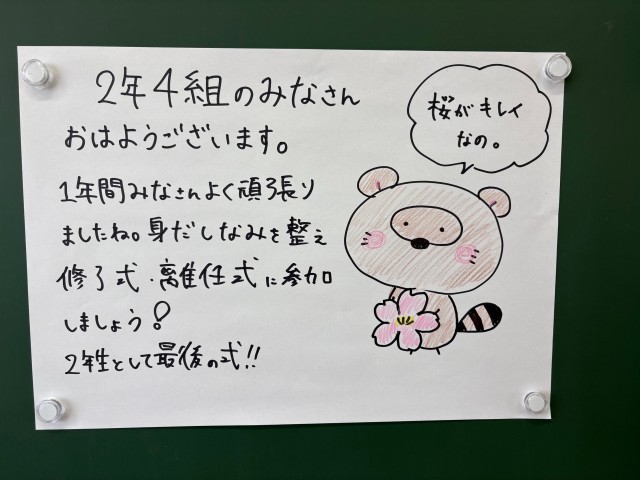 2年4組のみなさん
おはようございます。
1年間みなさんよく頑張り
ましたね。身だしなみを整え
修了式・離任式に参加
しましょう!
2年生として最後の式!!
桜がキレイ
なの。